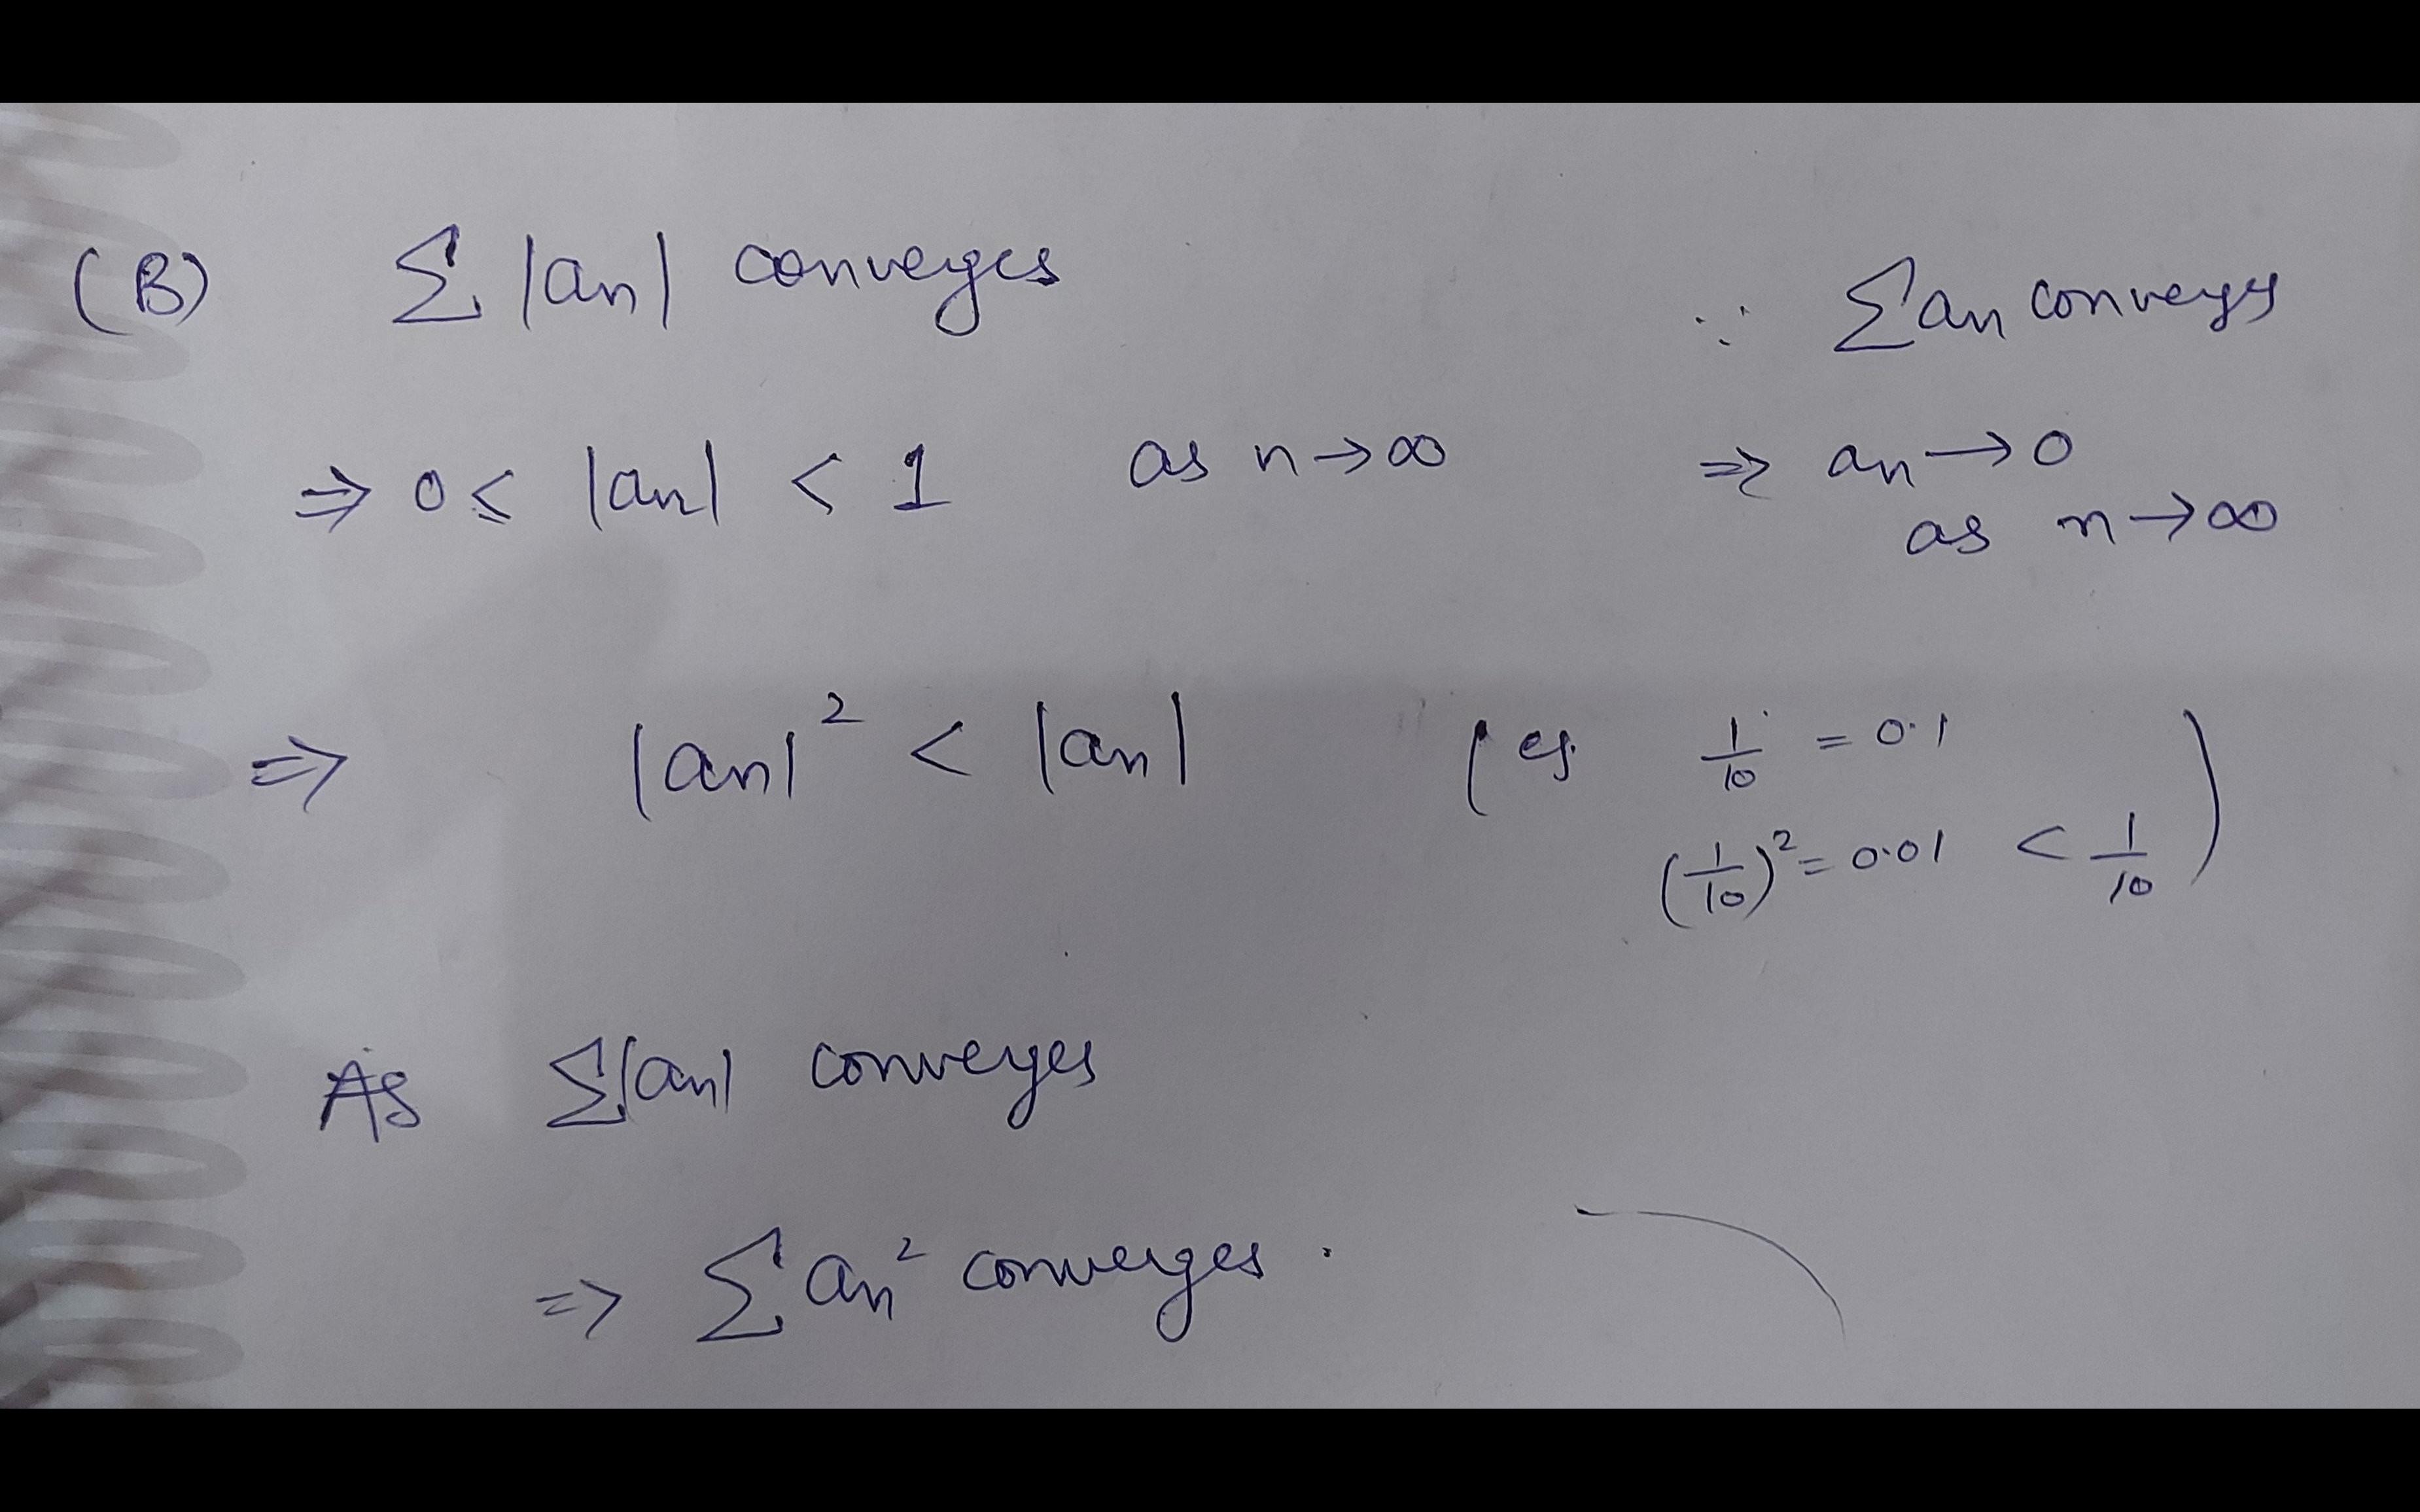 (B) Σ |an| converges ∵ Σ an converges
⇒ 0 ≤ |an| < 1 as n→∞ ⇒ an→0
as n→∞
⇒ |an|² < |an| (eg 1/10 = 0.1
(1/10)² = 0.01 < 1/10)
As Σ|an| converges
⇒ Σ an² converges.